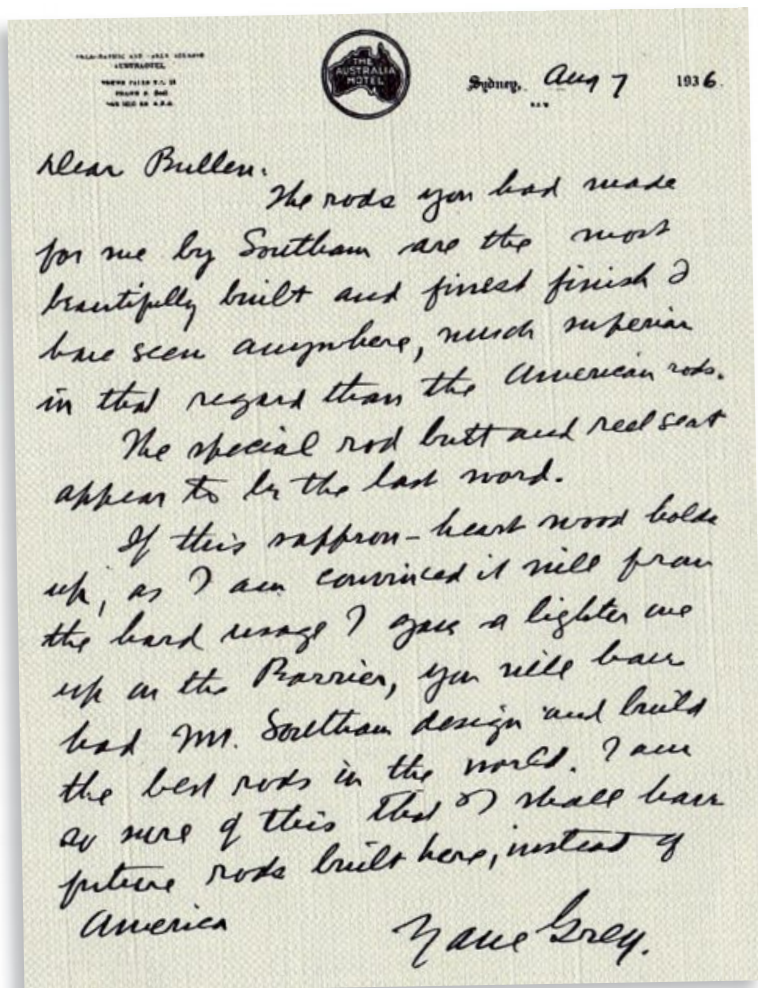 AUSTRAHOTEL
THE
AUSTRALIA
HOTEL
Sydney, Aug 7 1936.
N.S.W.
Dear Bullen.
The rods you had made
for me by Southam are the most
beautifully built and finest finish I
have seen anywhere, much superior
in that regard than the American rods.
The special rod butt and reel seat
appear to be the last word.
If this saffron-heart wood holds
up, as I am convinced it will from
the hard usage I gave a lighter one
up on the Barrier, you will have
had Mr. Southam design and build
the best rods in the world. I am
so sure of this that I shall have
future rods built here, instead of
America
Zane Grey.